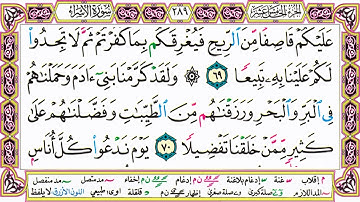 سُورَةُ الْإِسْرَاءِ ٢٨٩ الجزء الخامس عشر
عَلَيْكُمْ قَاصِفًا مِّنَ ٱلرِّيحِ فَيُغْرِقَكُم بِمَا كَفَرْتُمْ ثُمَّ لَا تَجِدُوا۟
لَكُمْ عَلَيْنَا بِهِۦ تَبِيعًا ٦٩ ۞ وَلَقَدْ كَرَّمْنَا بَنِىٓ ءَادَمَ وَحَمَلْنَٰهُمْ
فِى ٱلْبَرِّ وَٱلْبَحْرِ وَرَزَقْنَٰهُم مِّنَ ٱلطَّيِّبَٰتِ وَفَضَّلْنَٰهُمْ عَلَىٰ
كَثِيرٍ مِّمَّنْ خَلَقْنَا تَفْضِيلًا ٧٠ يَوْمَ نَدْعُوا۟ كُلَّ أُنَاسٍ